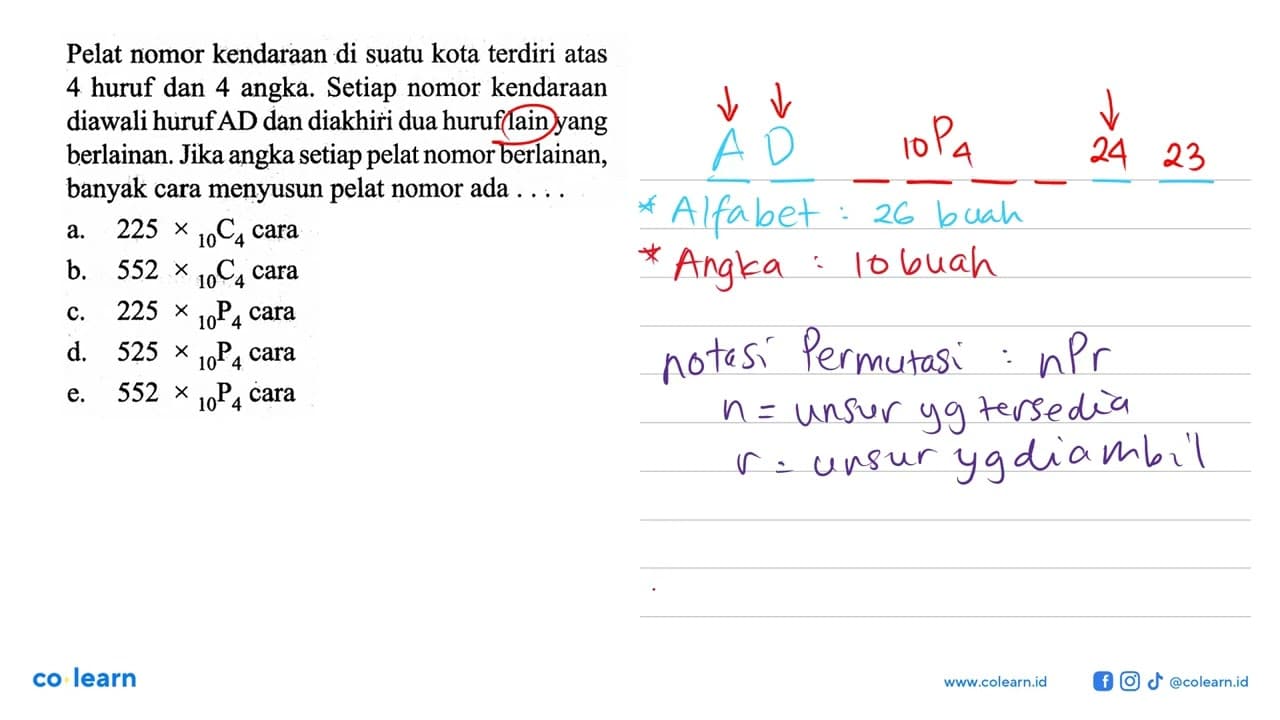 Pelat nomor kendaraan di suatu kota terdiri atas
4 huruf dan 4 angka. Setiap nomor kendaraan
diawali huruf AD dan diakhiri dua huruf lain yang
berlainan. Jika angka setiap pelat nomor berlainan,
banyak cara menyusun pelat nomor ada . . . .
a. 225 × ₁₀C₄ cara
b. 552 × ₁₀C₄ cara
c. 225 × ₁₀P₄ cara
d. 525 × ₁₀P₄ cara
e. 552 × ₁₀P₄ cara
A D ₁₀P₄ 24 23
* Alfabet : 26 buah
* Angka : 10 buah
notasi Permutasi : nPr
n = unsur yg tersedia
r = unsur yg diambil
co learn
www.colearn.id
@colearn.id